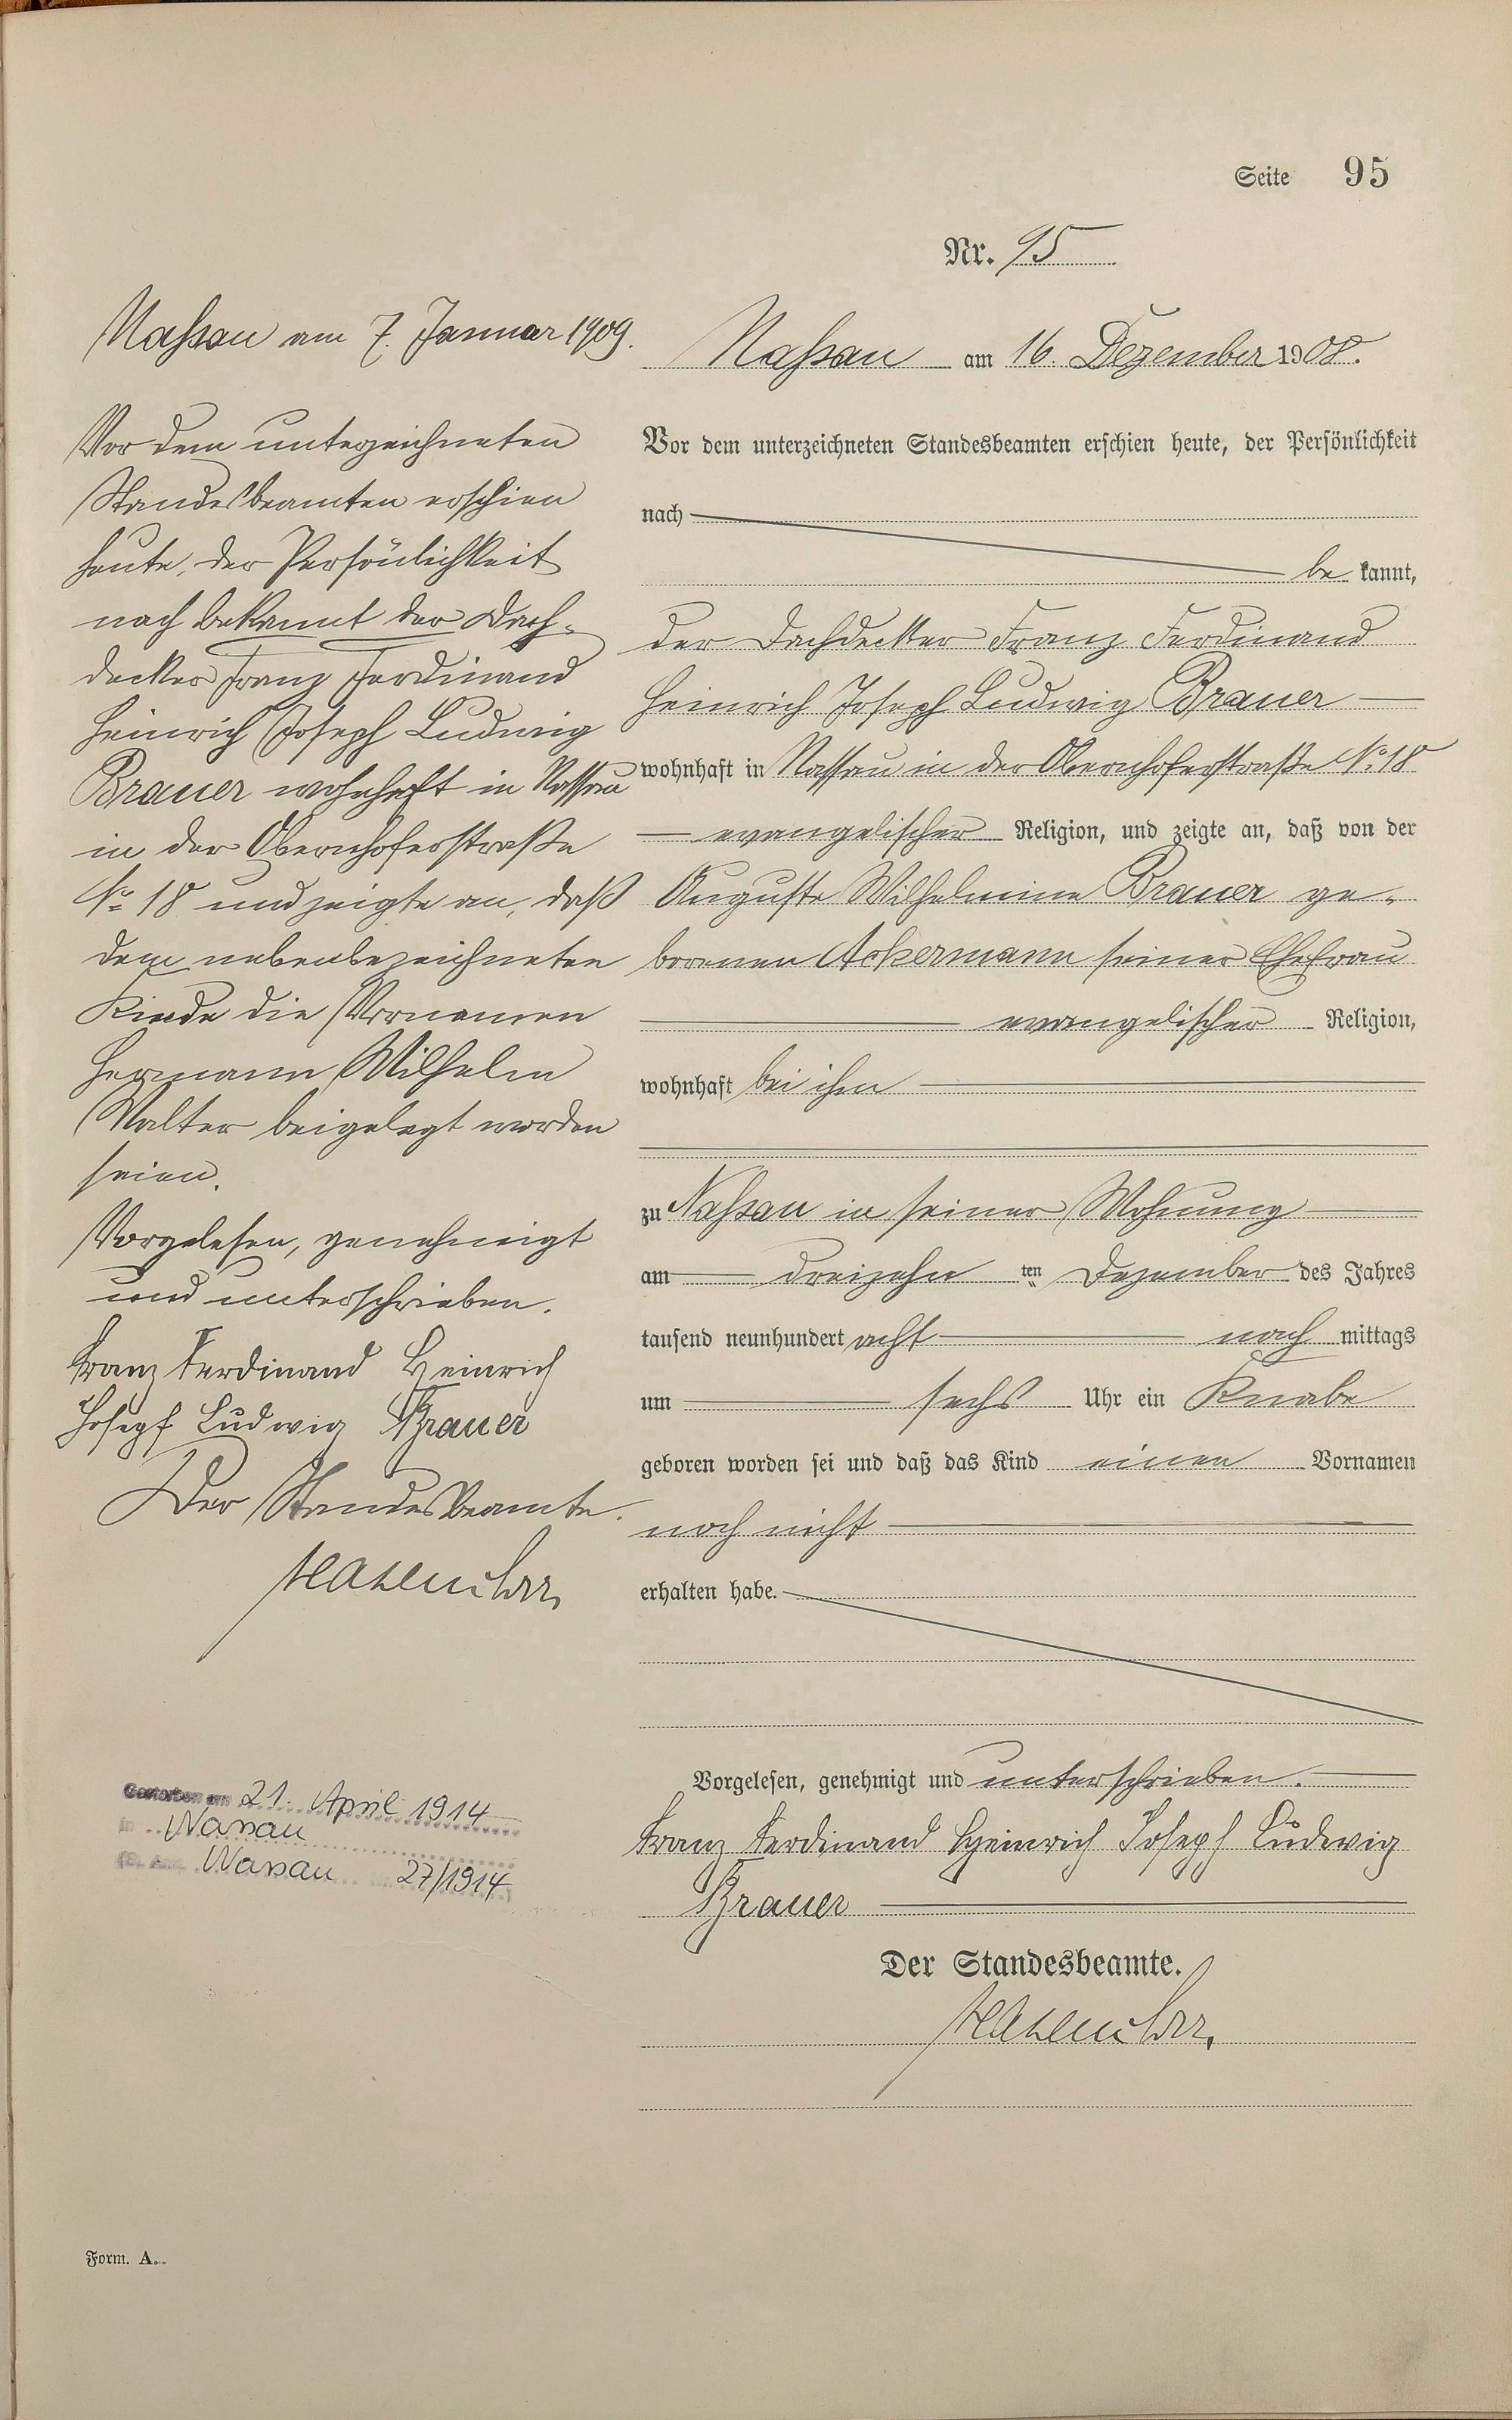 Seite 95
Nr. 95
Nassau am 16. Dezember 1908.
Vor dem unterzeichneten Standesbeamten erschien heute, der Persönlichkeit
nach
be kannt,
der Dachdecker Franz Ferdinand
Heinrich Joseph Ludwig Brauer
wohnhaft in Nassau in der Obernhoferstraße No 18
evangelischer Religion, und zeigte an, daß von der
Auguste Wilhelmine Brauer ge-
borenen Ackermann seiner Ehefrau
evangelischer Religion,
wohnhaft bei ihm
zu Nassau in seiner Wohnung
am dreizehn ten Dezember des Jahres
tausend neunhundert acht nach mittags
um sechs Uhr ein Knabe
geboren worden sei und daß das Kind einen Vornamen
noch nicht
erhalten habe.
Vorgelesen, genehmigt und unterschrieben.
Franz Ferdinand Heinrich Joseph Ludwig
Brauer
Der Standesbeamte.
Nassau am 7. Januar 1909.
Vor dem unterzeichneten
Standesbeamten erschien
heute, der Persönlichkeit
nach bekannt der Dach-
decker Franz Ferdinand
Heinrich Joseph Ludwig
Brauer wohnhaft in Nassau
in der Obernhoferstraße
No 18 und zeigte an, daß
dem nebenbezeichneten
Kinde die Vornamen
Hermann Wilhelm
Walter beigelegt worden
seien.
Vorgelesen, genehmigt
und unterschrieben.
Franz Ferdinand Heinrich
Joseph Ludwig Brauer
Der Standesbeamte.
Gestorben am 21. April 1914
in Nassau
Nassau 27/1914
Form. A.